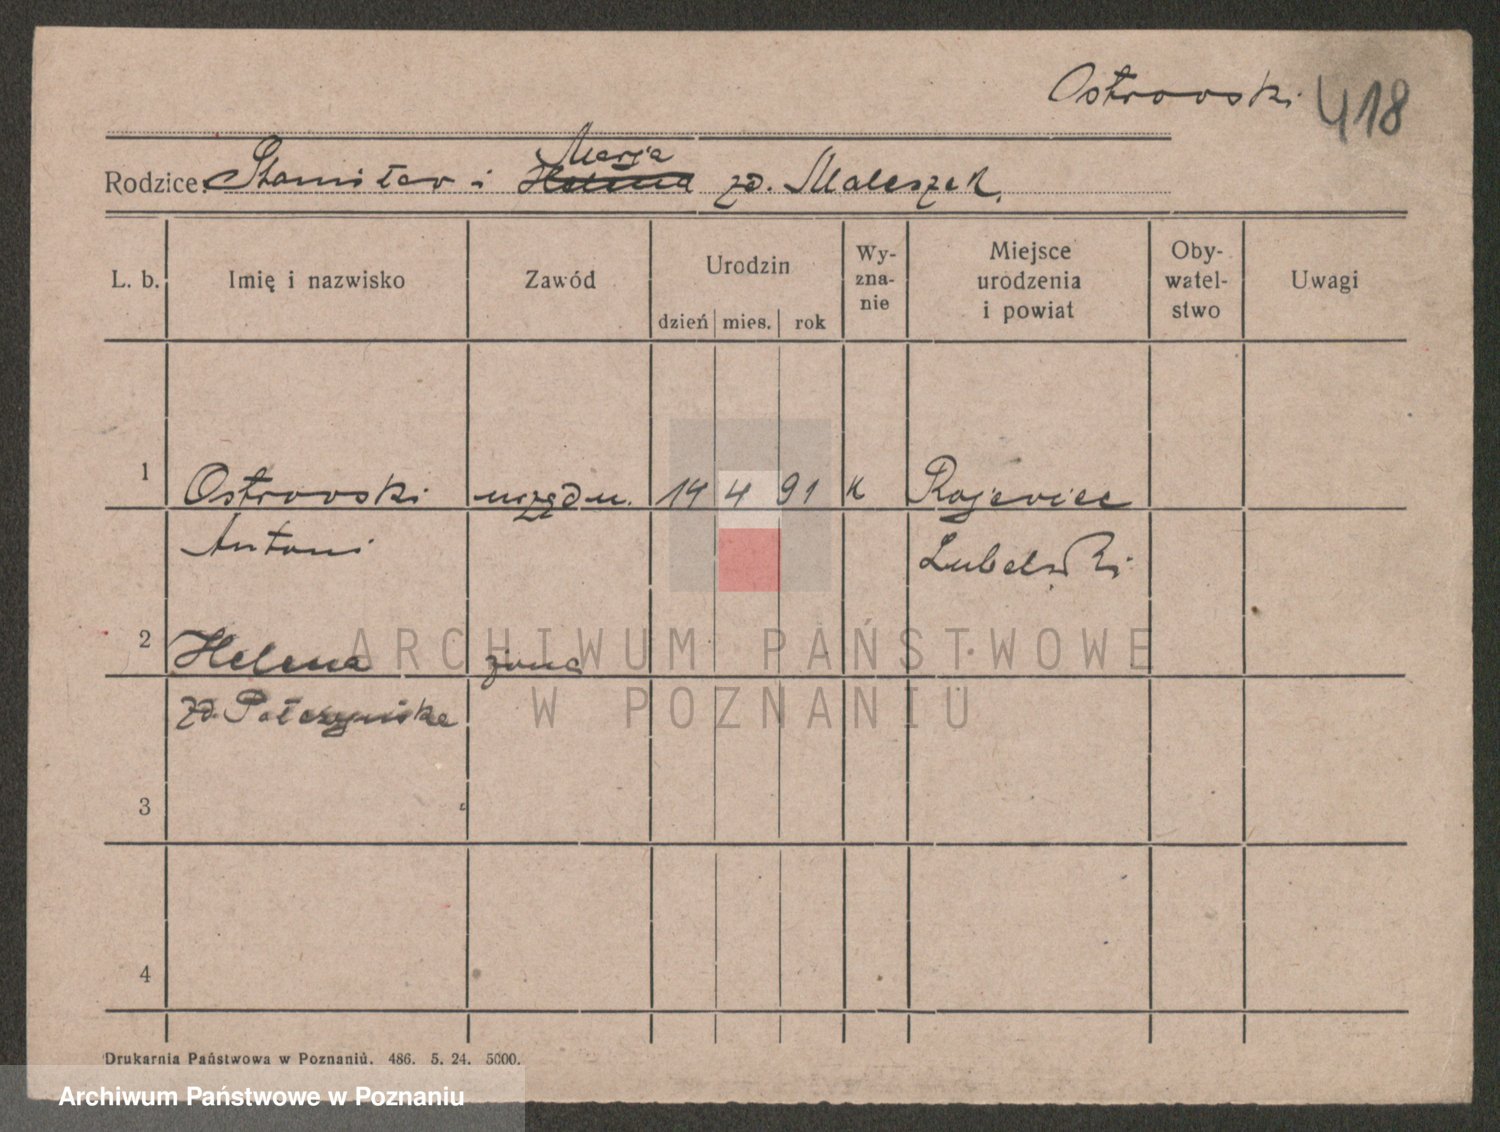 Ostrowski 418
Marja
Rodzice Stanisław i Helena zd. Maleszek.
L. b. Imię i nazwisko Zawód Urodzin dzień mies. rok Wy-zna-nie Miejsce urodzenia i powiat Oby-watel-stwo Uwagi
1 Ostrowski urzędn. 14 4 91 K Rajewiec
Antoni Lubelski
2 Helena żona
zd. Połczyńska
3
4
ARCHIWUM PAŃSTWOWE
W POZNANIU
Drukarnia Państwowa w Poznaniu. 486. 5. 24. 5000.
Archiwum Państwowe w Poznaniu